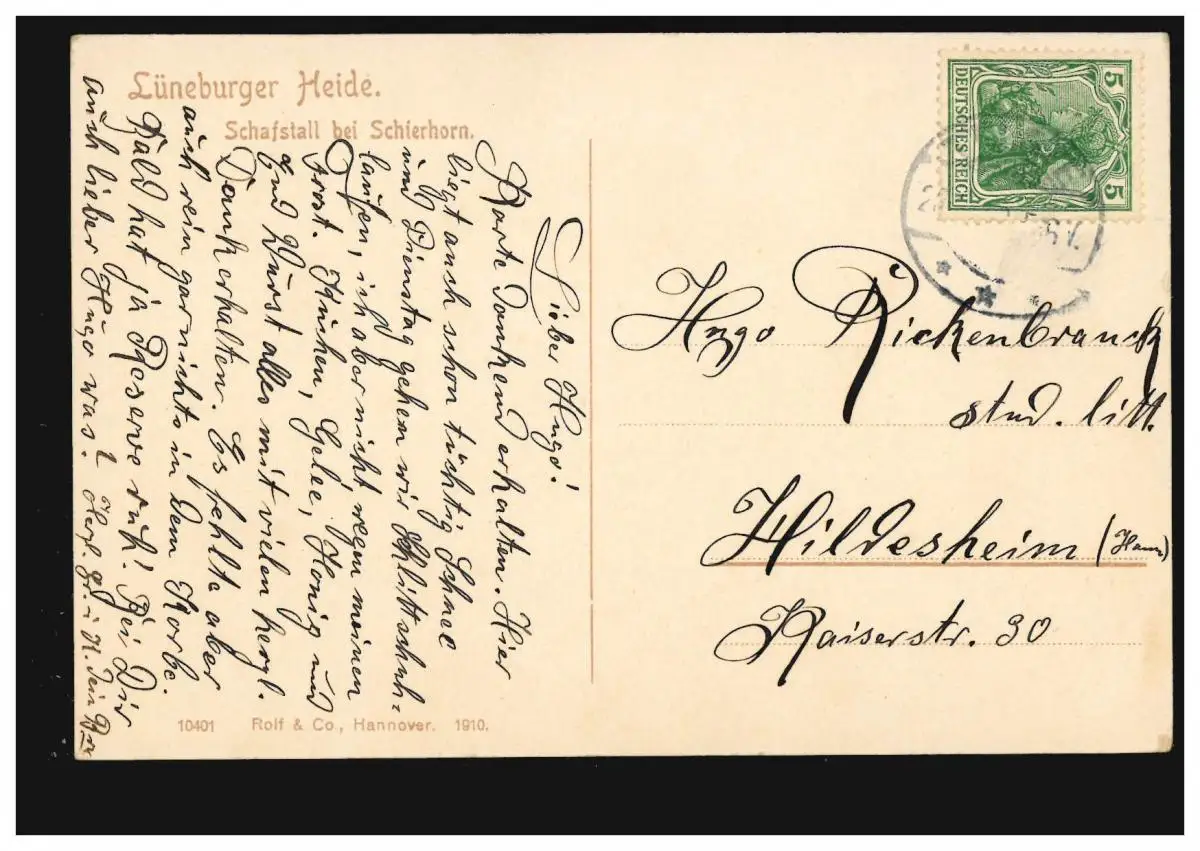 Lüneburger Heide.
Schafstall bei Schierhorn.
Lieber Hugo!
Karte dankend erhalten. Hier
liegt auch schon tüchtig Schnee
und Dienstag gehen wir Schlittschuh-
laufen, ich aber nicht wegen meinen
Frost. Kuchen, Gelee, Honig und
und Wurst alles mit vielen herzl.
Dank erhalten. Es fehlte aber
auch rein garnichts in dem Korbe.
Bald hat ja Reserve ruh! Bei Dir
auch lieber Hugo was? Herzl. Gr. u. K. Dein
10401 Rolf & Co., Hannover. 1910.
DEUTSCHES REICH
5
5
Hugo Rickenbrauck
stud. litt.
Hildesheim (Hann)
Kaiserstr. 30